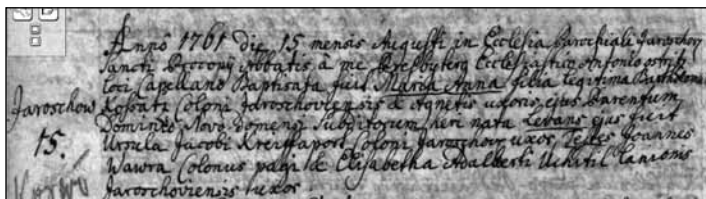 Anno 1761 die 15 mensis Augusti in Ecclesia Parochiali Jaroschov
Sancti Procopij Abbatis a me Presbytero Ecclesiastico Antonio
loci Capellano Baptisata fuit Maria Anna filia legitima
Jaroschow Kossati Coloni Jaroschoviensis & Agnetis uxoris ejus Parentum
15. Dominio Novo domensi Subditorum heri nata Levans ejus fuit
Ursula Jacobi Coloni Jaroschov: uxor, Testes Joannes
Wawra Colonus pagi & Elisabetha Adalberti Uchitil Lanionis
Jaroschoviensis uxor.